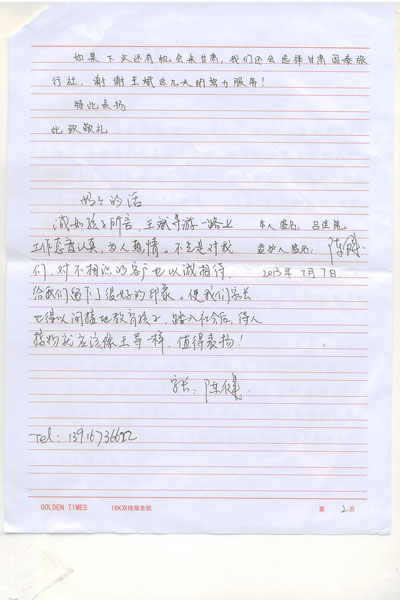 如果下次还有机会来甘肃，我们还会选择甘肃国泰旅
行社，谢谢王斌这几天的努力服务！
特此表扬
此致敬礼
妈妈的话
诚如孩子所言，王斌导游一路上
工作态度认真，为人热情。不光是对我
们，对不相识的客户也以诚相待，
给我们留下了很好的印象。使我们家长
也得以间接地教育孩子，踏入社会后，待人
接物就应该像王导一样，值得表扬！
本人签名：吕佳
监护人签名：陈健
2013年7月7日
家长：陈健
Tel：13916736622
GOLDEN TIMES
18K双线报告纸
第 2 页